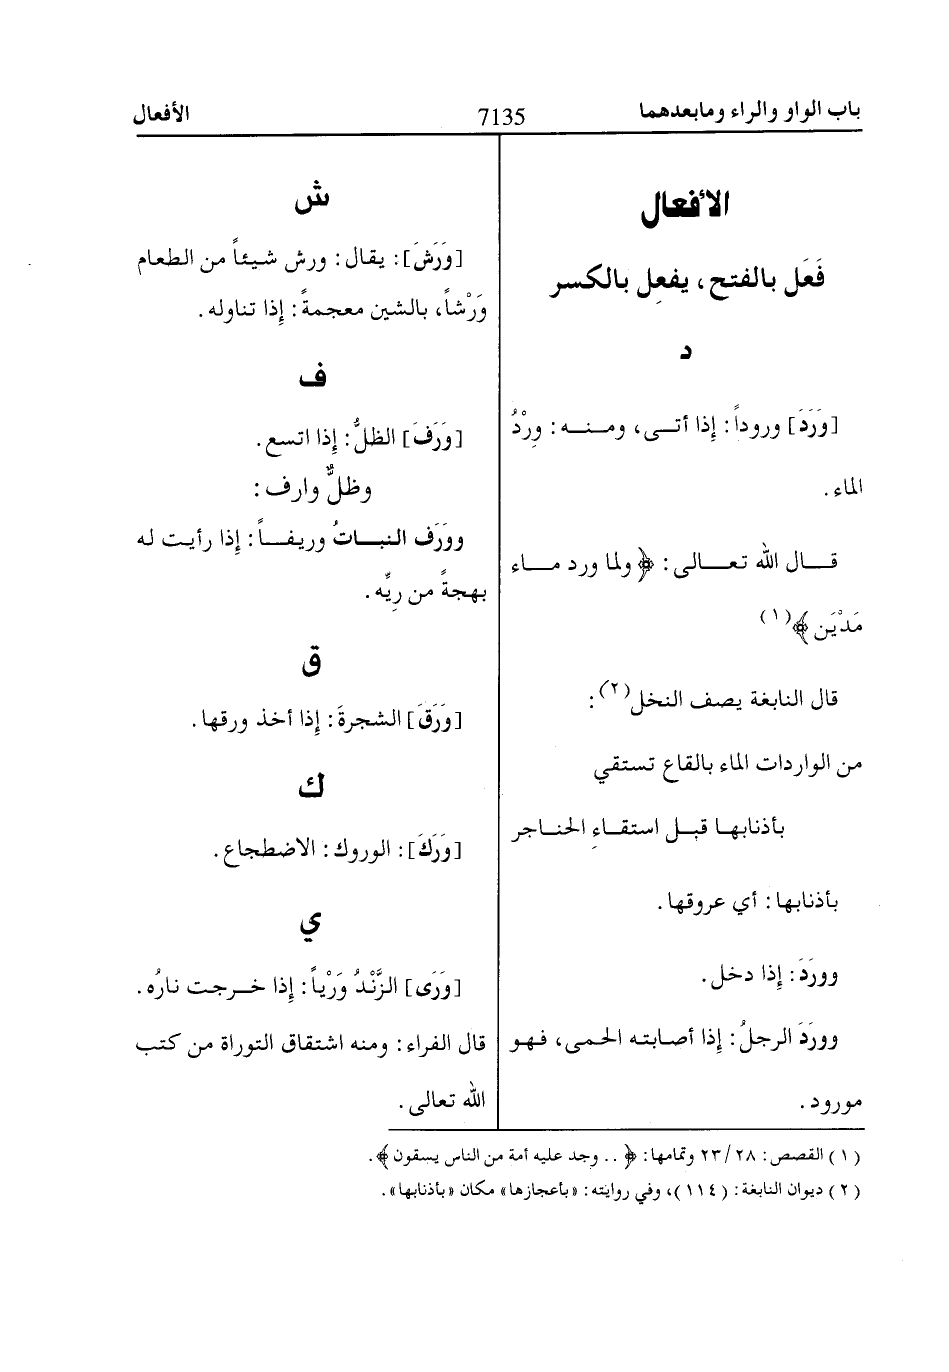 باب الواو والراء ومابعدهما
7135
الأفعال
الأفعال
فَعَل بالفتح، يفعِل بالكسر
د
[وَرَدَ] وروداً: إذا أتـى، ومـنـه: وِرْدُ
الماء.
قـال الله تعـالى: ﴿ولما ورد مـاء
مَدْيَن﴾(١)
قال النابغة يصف النخل(٢):
من الواردات الماء بالقاع تستقي
بأذنابها قبل استقاءِ الحناجر
بأذنابها: أي عروقها.
وورَدَ: إذا دخل.
وورَدَ الرجلُ: إذا أصابته الحمى، فهو
مورود.
ش
[وَرَشَ]: يقال: ورش شيئاً من الطعام
وَرْشاً، بالشين معجمةً: إذا تناوله.
ف
[وَرَفَ] الظلُّ: إذا اتسع.
وظلٌّ وارف:
ووَرَف النبـاتُ وريفـاً: إذا رأيت له
بهجةً من رِيِّه.
ق
[وَرَقَ] الشجرةَ: إذا أخذ ورقها.
ك
[وَرَكَ]: الوروك: الاضطجاع.
ي
[وَرَى] الزَّنْدُ وَرْياً: إذا خـرجت نارُه.
قال الفراء: ومنه اشتقاق التوراة من كتب
الله تعالى.
(١) القصص: ٢٣/٢٨ وتمامها: ﴿.. وجد عليه أمة من الناس يسقون﴾.
(٢) ديوان النابغة: (١١٤)، وفي روايته: «بأعجازها» مكان «بأذنابها».